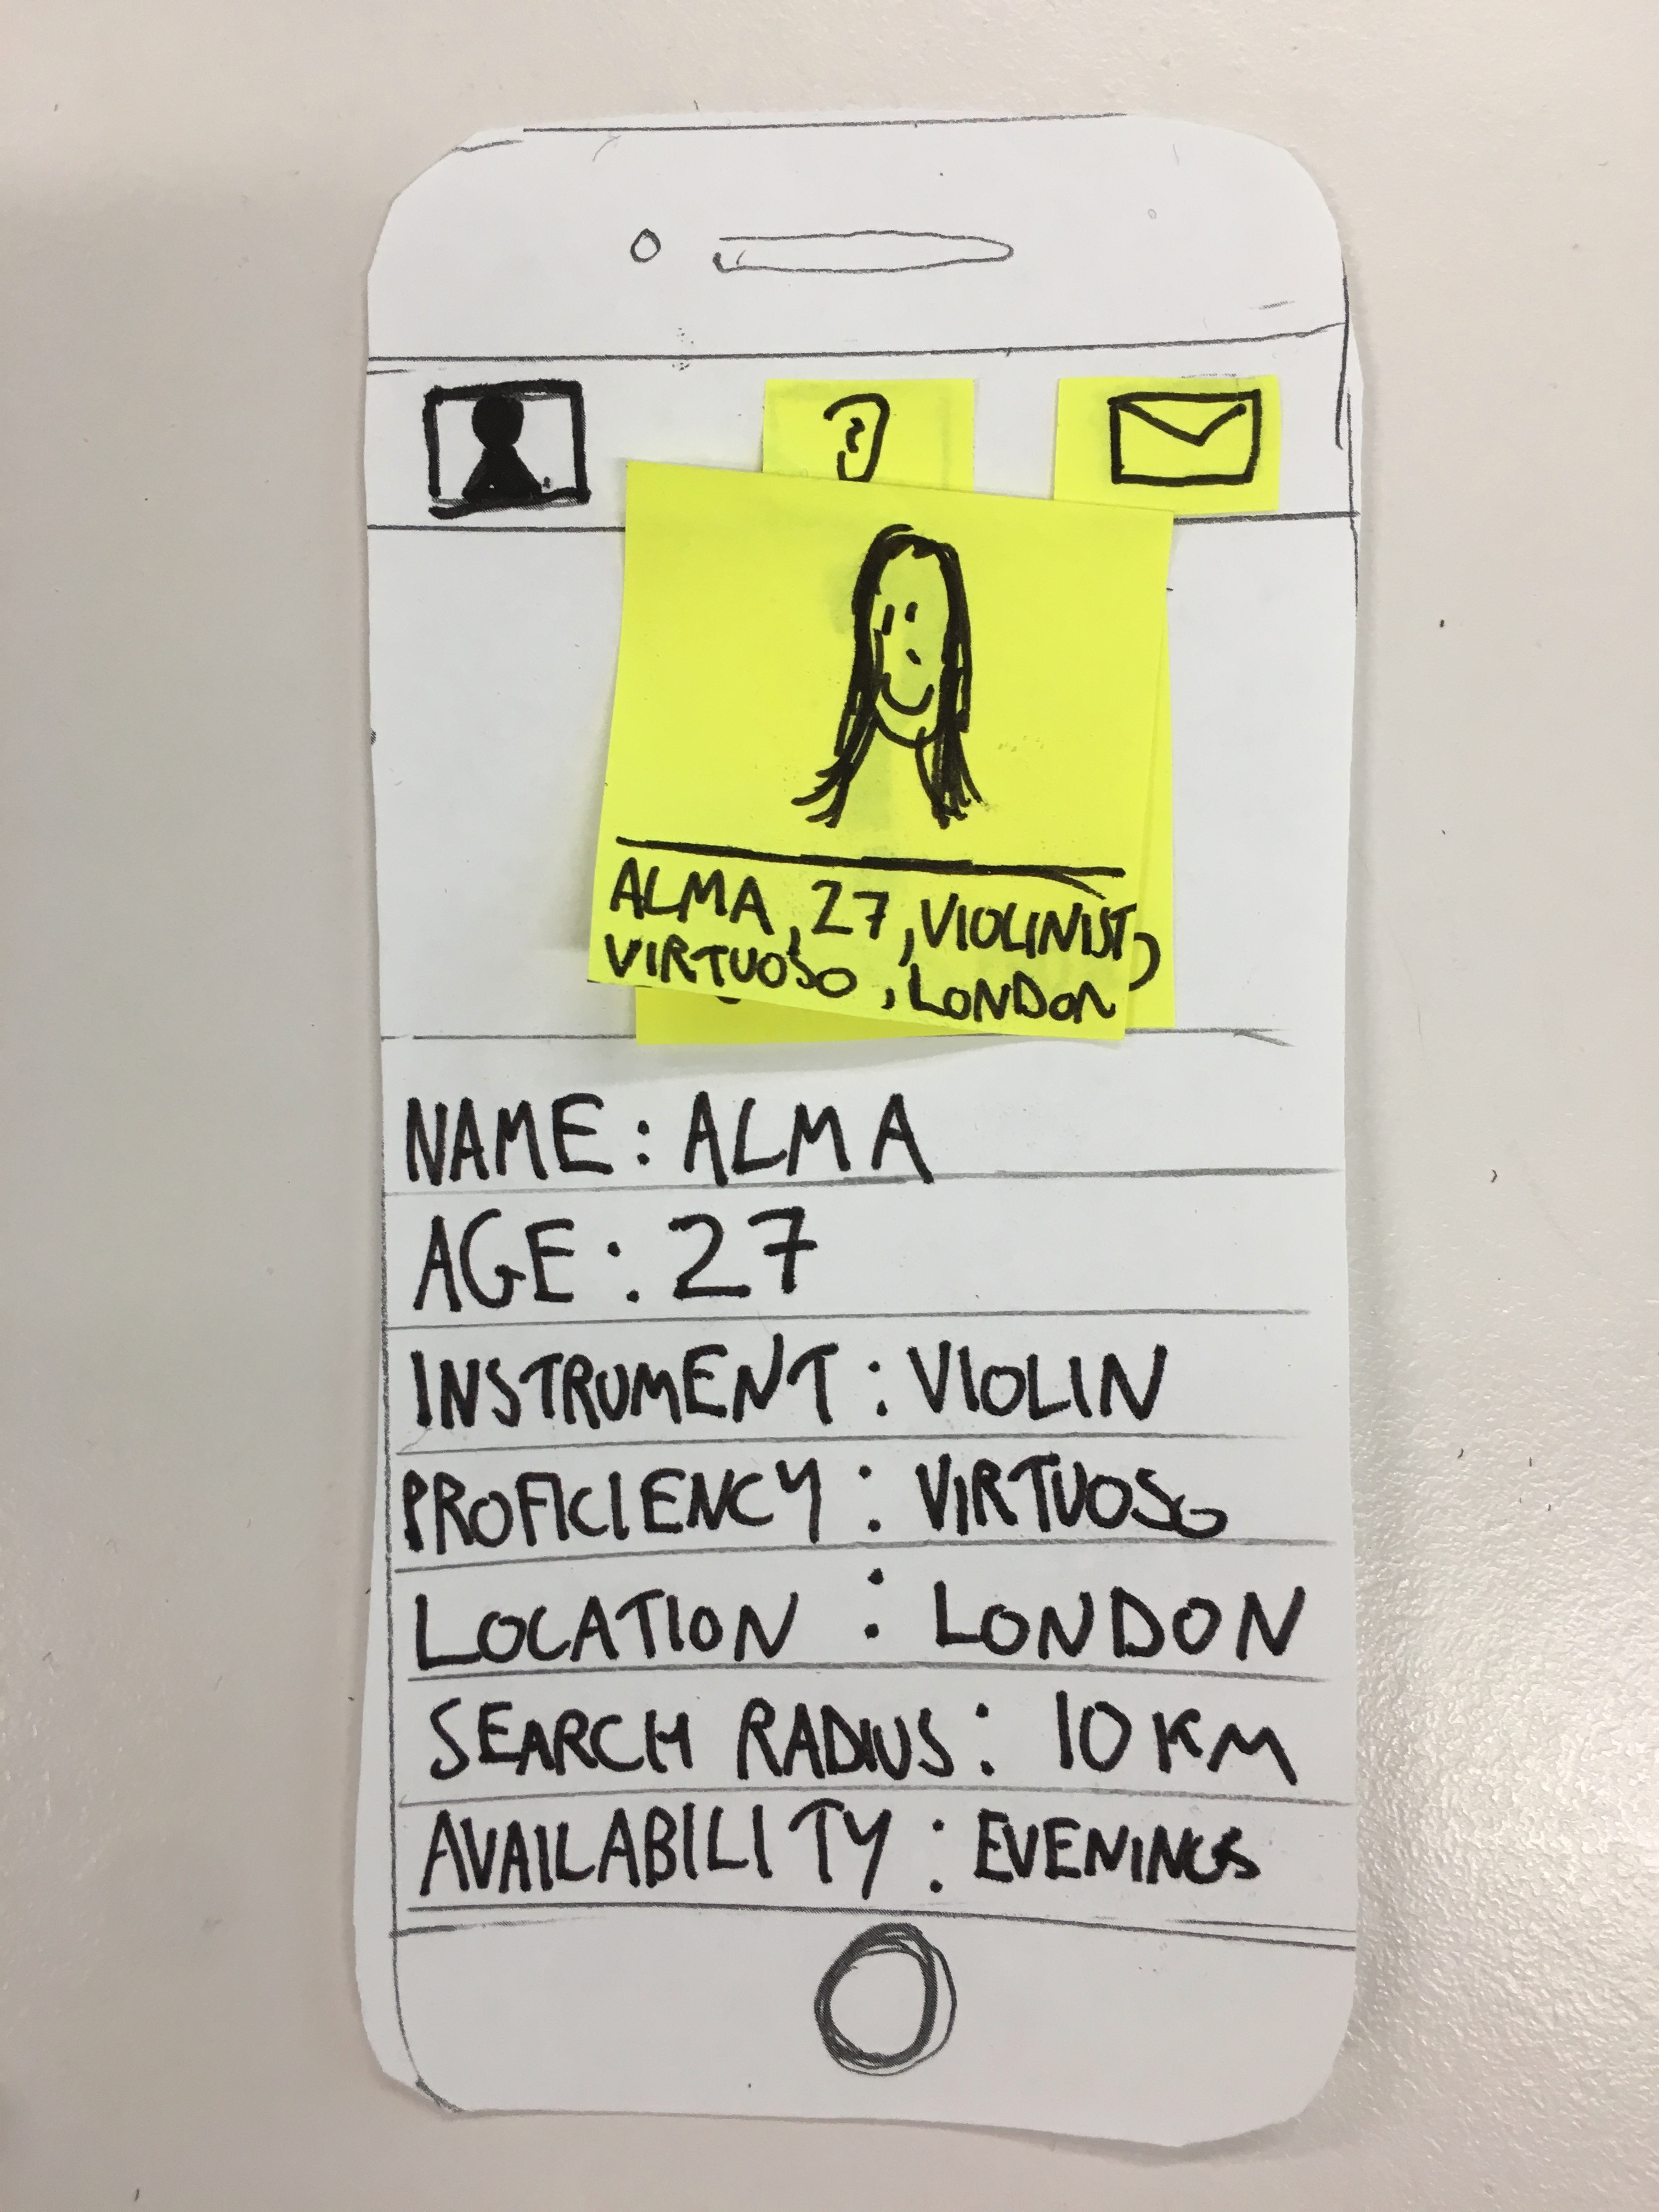 ALMA, 27, VIOLINIST,
VIRTUOSO, LONDON
NAME: ALMA
AGE: 27
INSTRUMENT: VIOLIN
PROFICIENCY: VIRTUOSO
LOCATION: LONDON
SEARCH RADIUS: 10 KM
AVAILABILITY: EVENINGS